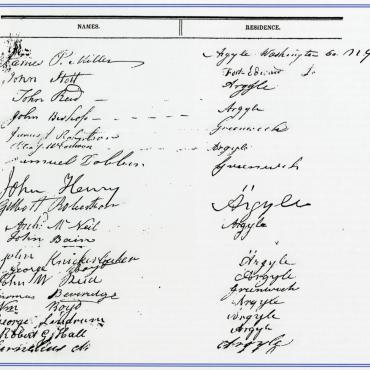 NAMES. RESIDENCE.
James P. Miller Argyle Washington Co. N Y
John Stott Fort Edward Do
John Reid Argyle
John Bishop Argyle
James Robertson Greenwich
Argyle
Samuel Dobbin Greenwich
John Henry Argyle
Gilbert Robertson
Archd. McNeil Argyle
John Bain
John Knickerbacker Argyle
George Argyle
John W Reid Greenwich
Thomas Beveridge Argyle
Wm Boyd Argyle
George Lendrum Argyle
Robert G Hall Argyle
Cornelius